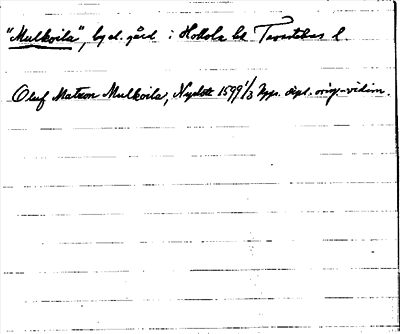 "Mulkoila", by el. gård i Hollola el. Tavastehus l
Oluf Matson Mulkoila, Nyslott 1599 1/3 Upps. dipl. orig.-vidim.